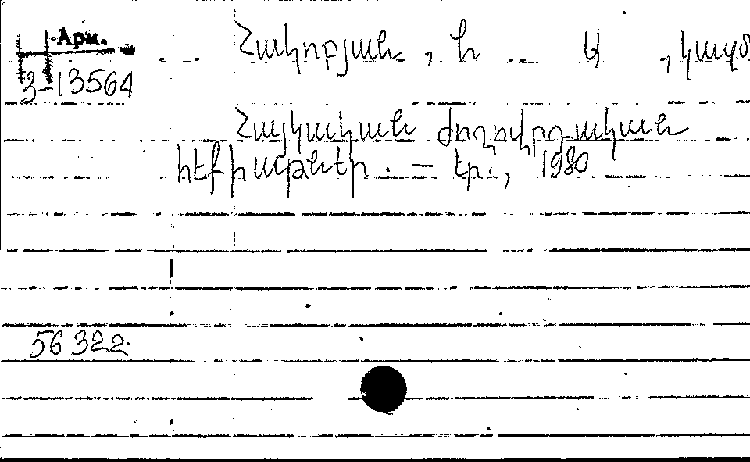 Арм.
3-13564
Հակոբյան, Ն. Ա., կազմ
Հայկական ժողովրդական
հեքիաթներ. — Եր., 1980
56322